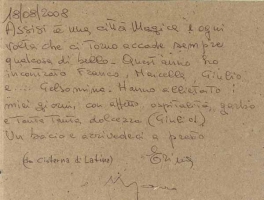 18/08/2008
Assisi è una città Magica e ogni
volta che ci torno accade sempre
qualcosa di bello. Quest'anno ho
incontrato Franco, Marcella, Giulio
e .... Gelsomina. Hanno allietato i
miei giorni con affetto, ospitalità, garbo
e tanta tanta dolcezza (Giulio!)
Un bacio e arrivederci a presto
(da Cisterna di Latina)